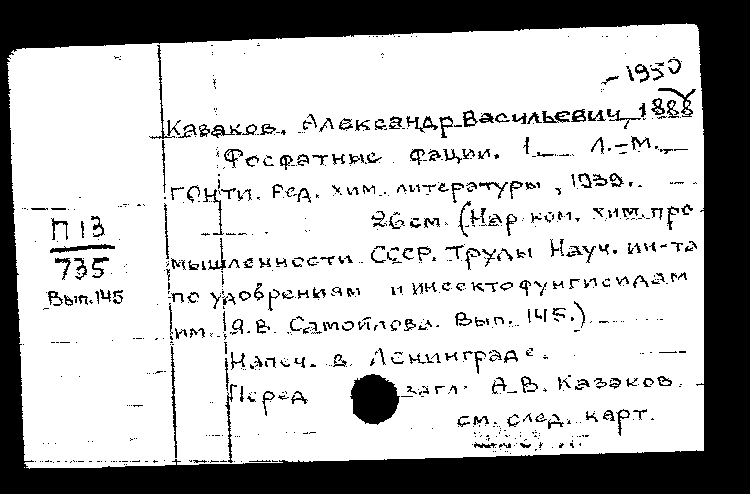 - 1950
Казаков, Александр Васильевич, 1888
Фосфатные фации. 1. Л.-М.,
ГОНТИ. Ред. хим. литературы, 1939.
26 см. (Нар. ком. хим. про-
мышленности СССР. Труды Науч. ин-та
по удобрениям и инсектофунгисидам
им. Я.В. Самойлова. Вып. 145.)
Напеч. в Ленинграде.
Перед загл. А.В. Казаков.
см. след. карт.
П 13
735
Вып. 145